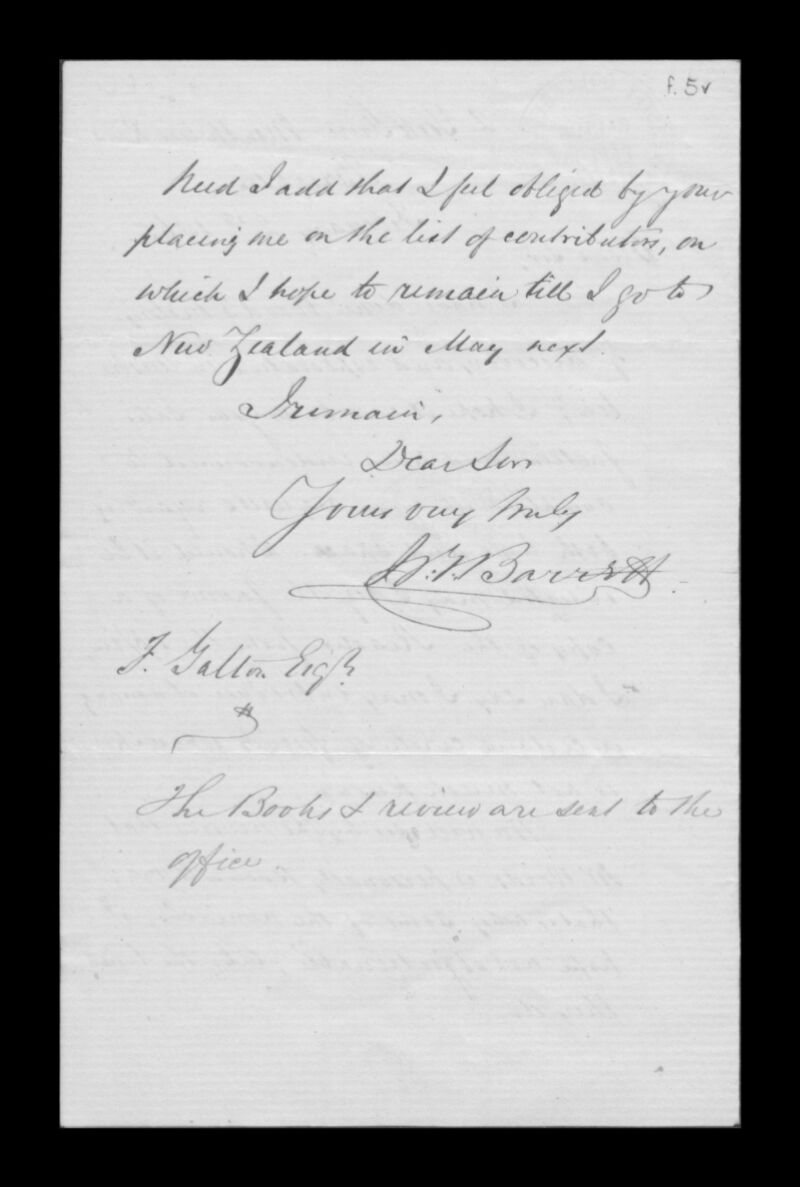 f. 5v
Need I add that I feel obliged by your
placing me on the list of contributors, on
which I hope to remain till I go to
New Zealand in May next.
I remain,
Dear Sir
Yours very truly
Barrett
F. Galton Esqr.
The Books & review are sent to the
office.